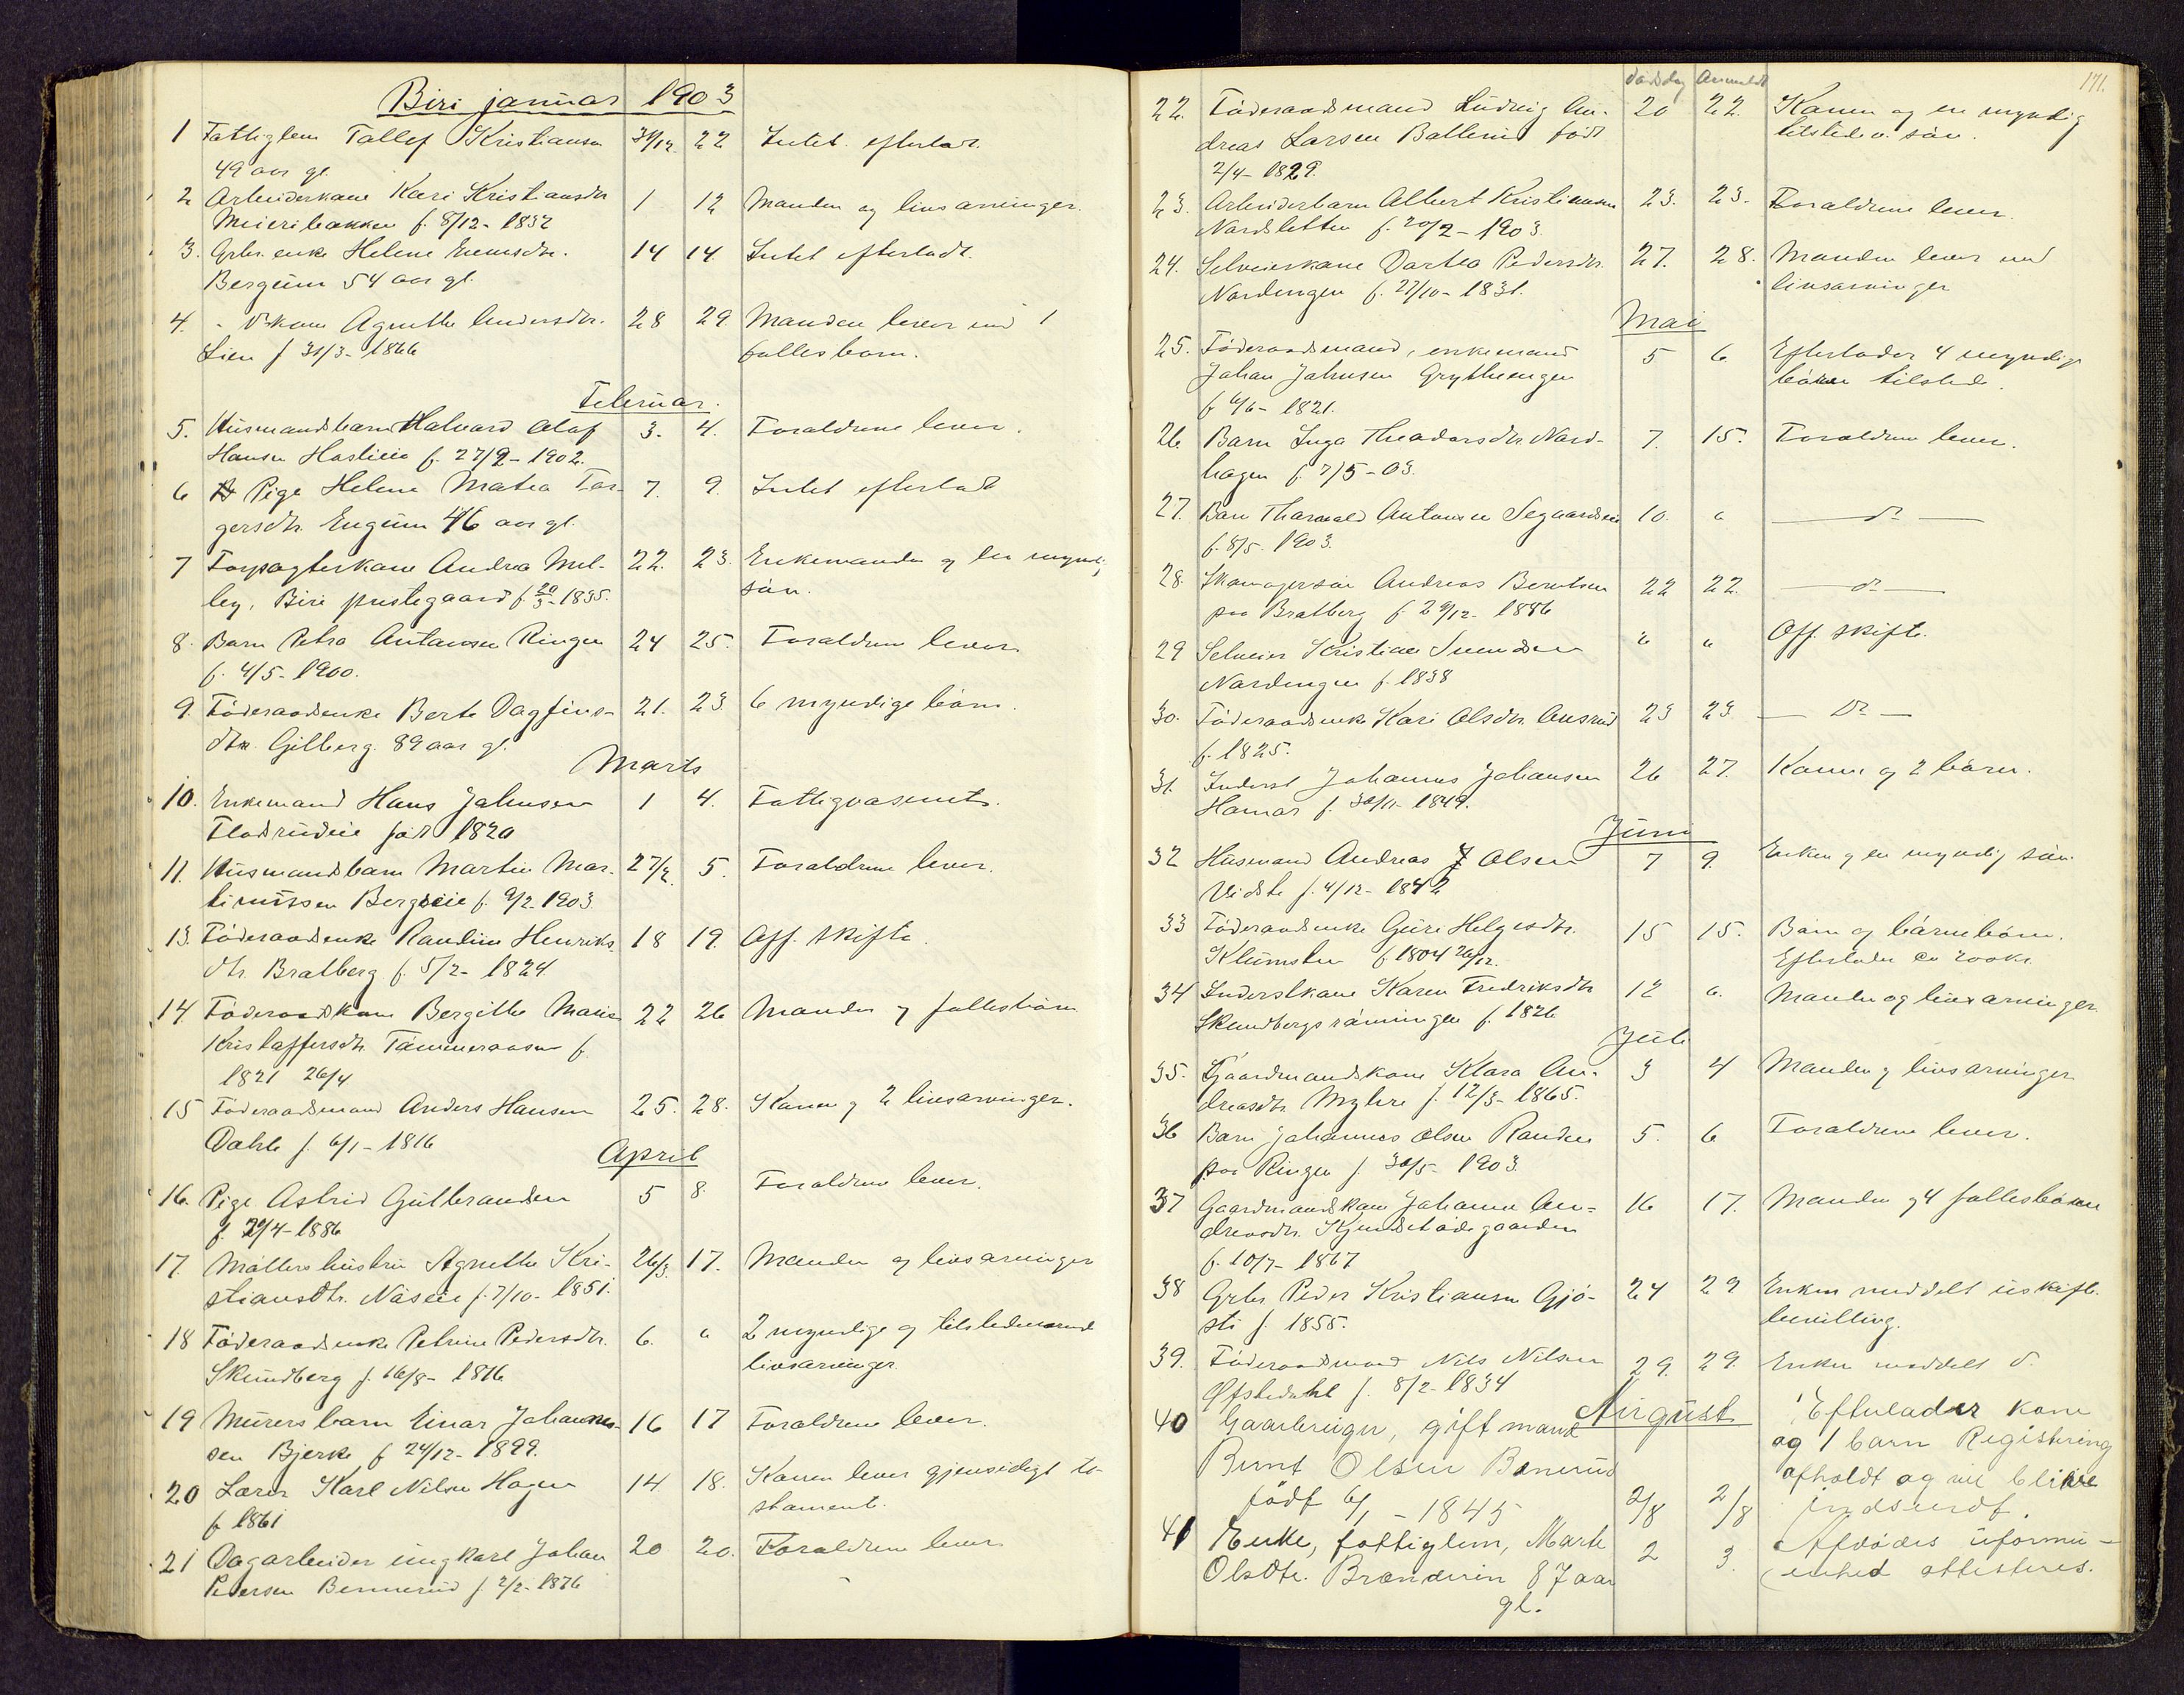 Biri januar 1903
1 Fattiglem Tollef Kristiansen 31/12. 22 Intet efterladt.
49 aar gl.
2 Arbeiderkone Kari Kristiansdtr 1 12 Manden og livsarvinger.
Meieribakken f. 8/12 - 1832
3. Grbr. enke Helene Evensdtr. 14 14 Intet efterladt.
Bergum 54 aar gl.
4. - d-kone Agnethe Andersdtr. 28 29 Manden lever med 1
Lien f 31/3 - 1866 fællesbarn.
Februar.
5. Husmandsbarn Halvard Olaf 3. 4. Forældrene lever.
Hansen f. 27/9 - 1902.
6 Pige Helene Matea Tor- 7. 9. Intet efterladt
gersdtr. Engum 46 aar gl.
7 Forpagterkone Andrea Mel- 22. 23. Enkemanden og en myndig
by, Biri prestegaard f. 20/3 - 1835. søn.
8. Barn Petra Antonsen Ringen 24 25. Forældrene lever
f. 4/5 - 1900.
9. Föderaadsenke Berte Dagfins- 21. 23. 6 myndige børn.
dtr. Gilberg. 89 aar gl.
Marts
10. Enkemand Hans Johnsen 1 4. Fattigvæsenet.
Fladrudeie født 1820
11. Husmandsbarn Martin Mar- 27/2. 5. Forældrene lever.
tinussen Bergseie f. 9/2 1903
13. Föderaadsenke Randine Henriks 18 19. Off. skifte.
dtr. Bratberg f. 5/2 - 1824
14 Föderaadskone Bergitte Marie 22 26 Manden og fællesbørn
Kristoffersdtr. Tømmeraasen f.
1821 26/4
15 Föderaadsmand Anders Hansen 25. 28. Konen og 2 livsarvinger.
Dahle f. 6/1 - 1816
April
16. Pige Astrid Gulbrandsen 5 8. Forældrene lever.
f. 29/4 - 1886
17. Møllers hustru Agnethe Kri- 26/3. 17. Manden og livsarvinger
stiansdtr. Næseie f. 7/10 - 1851.
18 Föderaadsenke Petrine Pedersdtr. 6. " 2 myndige og tilstedeværende
Skundberg f. 16/8 - 1816 livsarvinger.
19 Murers barn Einar Johannes- 16 17 Forældrene lever.
sen Bjerke f 24/12 - 1899.
20 Lærer Karl Nilsen Hagen 14 18. Konen lever gjensidigt te-
f 1861 stament.
21 Dagarbeider ungkarl Johan 20 20. Forældrene lever
Pedersen Bennerud f. 2/2 - 1876
Dødsdag Anmeldt 171.
22. Föderaadsmand Ludvig An- 20 22. Konen og en myndig
dreas Larsen født tilstedev. søn.
2/4 - 1829.
23. Arbeiderbarn Albert Kristiansen 23. 23. Forældrene lever.
Nordsletten f. 20/2 - 1903.
24. Selveierkone Dortea Pedersdtr. 27. 28. Manden lever med
Nordengen f. 27/10 - 1831. livsarvinger
Mai
25. Föderaadsmand, enkemand 5 6 Efterlader 4 myndige
Johan Johnsen Grythengen børn tilstede.
f 6/6 - 1821.
26 Barn Inga Theodorsdtr. Nord- 7. 15. Forældrene lever.
hagen f. 7/5 - 03.
27. Barn Thorvald Antonsen Segaardseie 10. " — do —
f. 8/5. 1903.
28. Skomagersøn Andreas Berntsen 22 22. — do —
paa Bratberg f. 29/12 - 1886
29 Selveier Kristian Svendsen " " Off. skifte.
Nordengen f. 1838
30. Föderaadsenke Kari Olsdtr. 23 23. — Do —
f. 1825.
31. Inderst Johannes Johansen 26 27. Konen og 2 børn.
Hamar f. 30/11 - 1849.
Juni
32 Husmand Andreas Olsen 7 9. Enken og en myndig søn.
f. 4/12 - 1842
33 Föderaadsenke Guri Helgesdtr. 15 15. Børn og børnebørn.
f 1804 26/12. Efterlader ca 200 kr.
34 Inderstkone Karen Fredriksdtr 12 ". Manden og livsarvinger.
Skundbergsrønningen f. 1826.
Juli
35. Gaardmandskone Klara An- 3 4 Manden og livsarvinger
dreasdtr. Myhre f. 12/3 - 1865.
36 Barn Johannes Olsen Randen 5. 6 Forældrene lever.
paa Ringen f. 30/5 - 1903.
37 Gaardmandskone Johanne An- 16 17. Manden og 4 fællesbørn
dreasdtr.
f. 10/7 - 1867
38 Grbr. Peder Kristiansen Gjö- 24 29 Enken meddelt uskifte-
sti f. 1855. bevilling.
39. Föderaadsmand Nils Nilsen 29. 29. Enken meddelt d.
Øfstedahl f. 8/2 - 1834
August
40 Gaarbruger, gift mand Efterlader kone
Bernt Olsen Benerud og 1 barn Registrering
født 6/1 - 1845 2/8 2/8 afholdt og vil blive indsendt.
41 Enke, fattiglem, Marte 2 3. Afdødes uformu-
Olsdtr. 87 aar enhed attesteres.
gl.